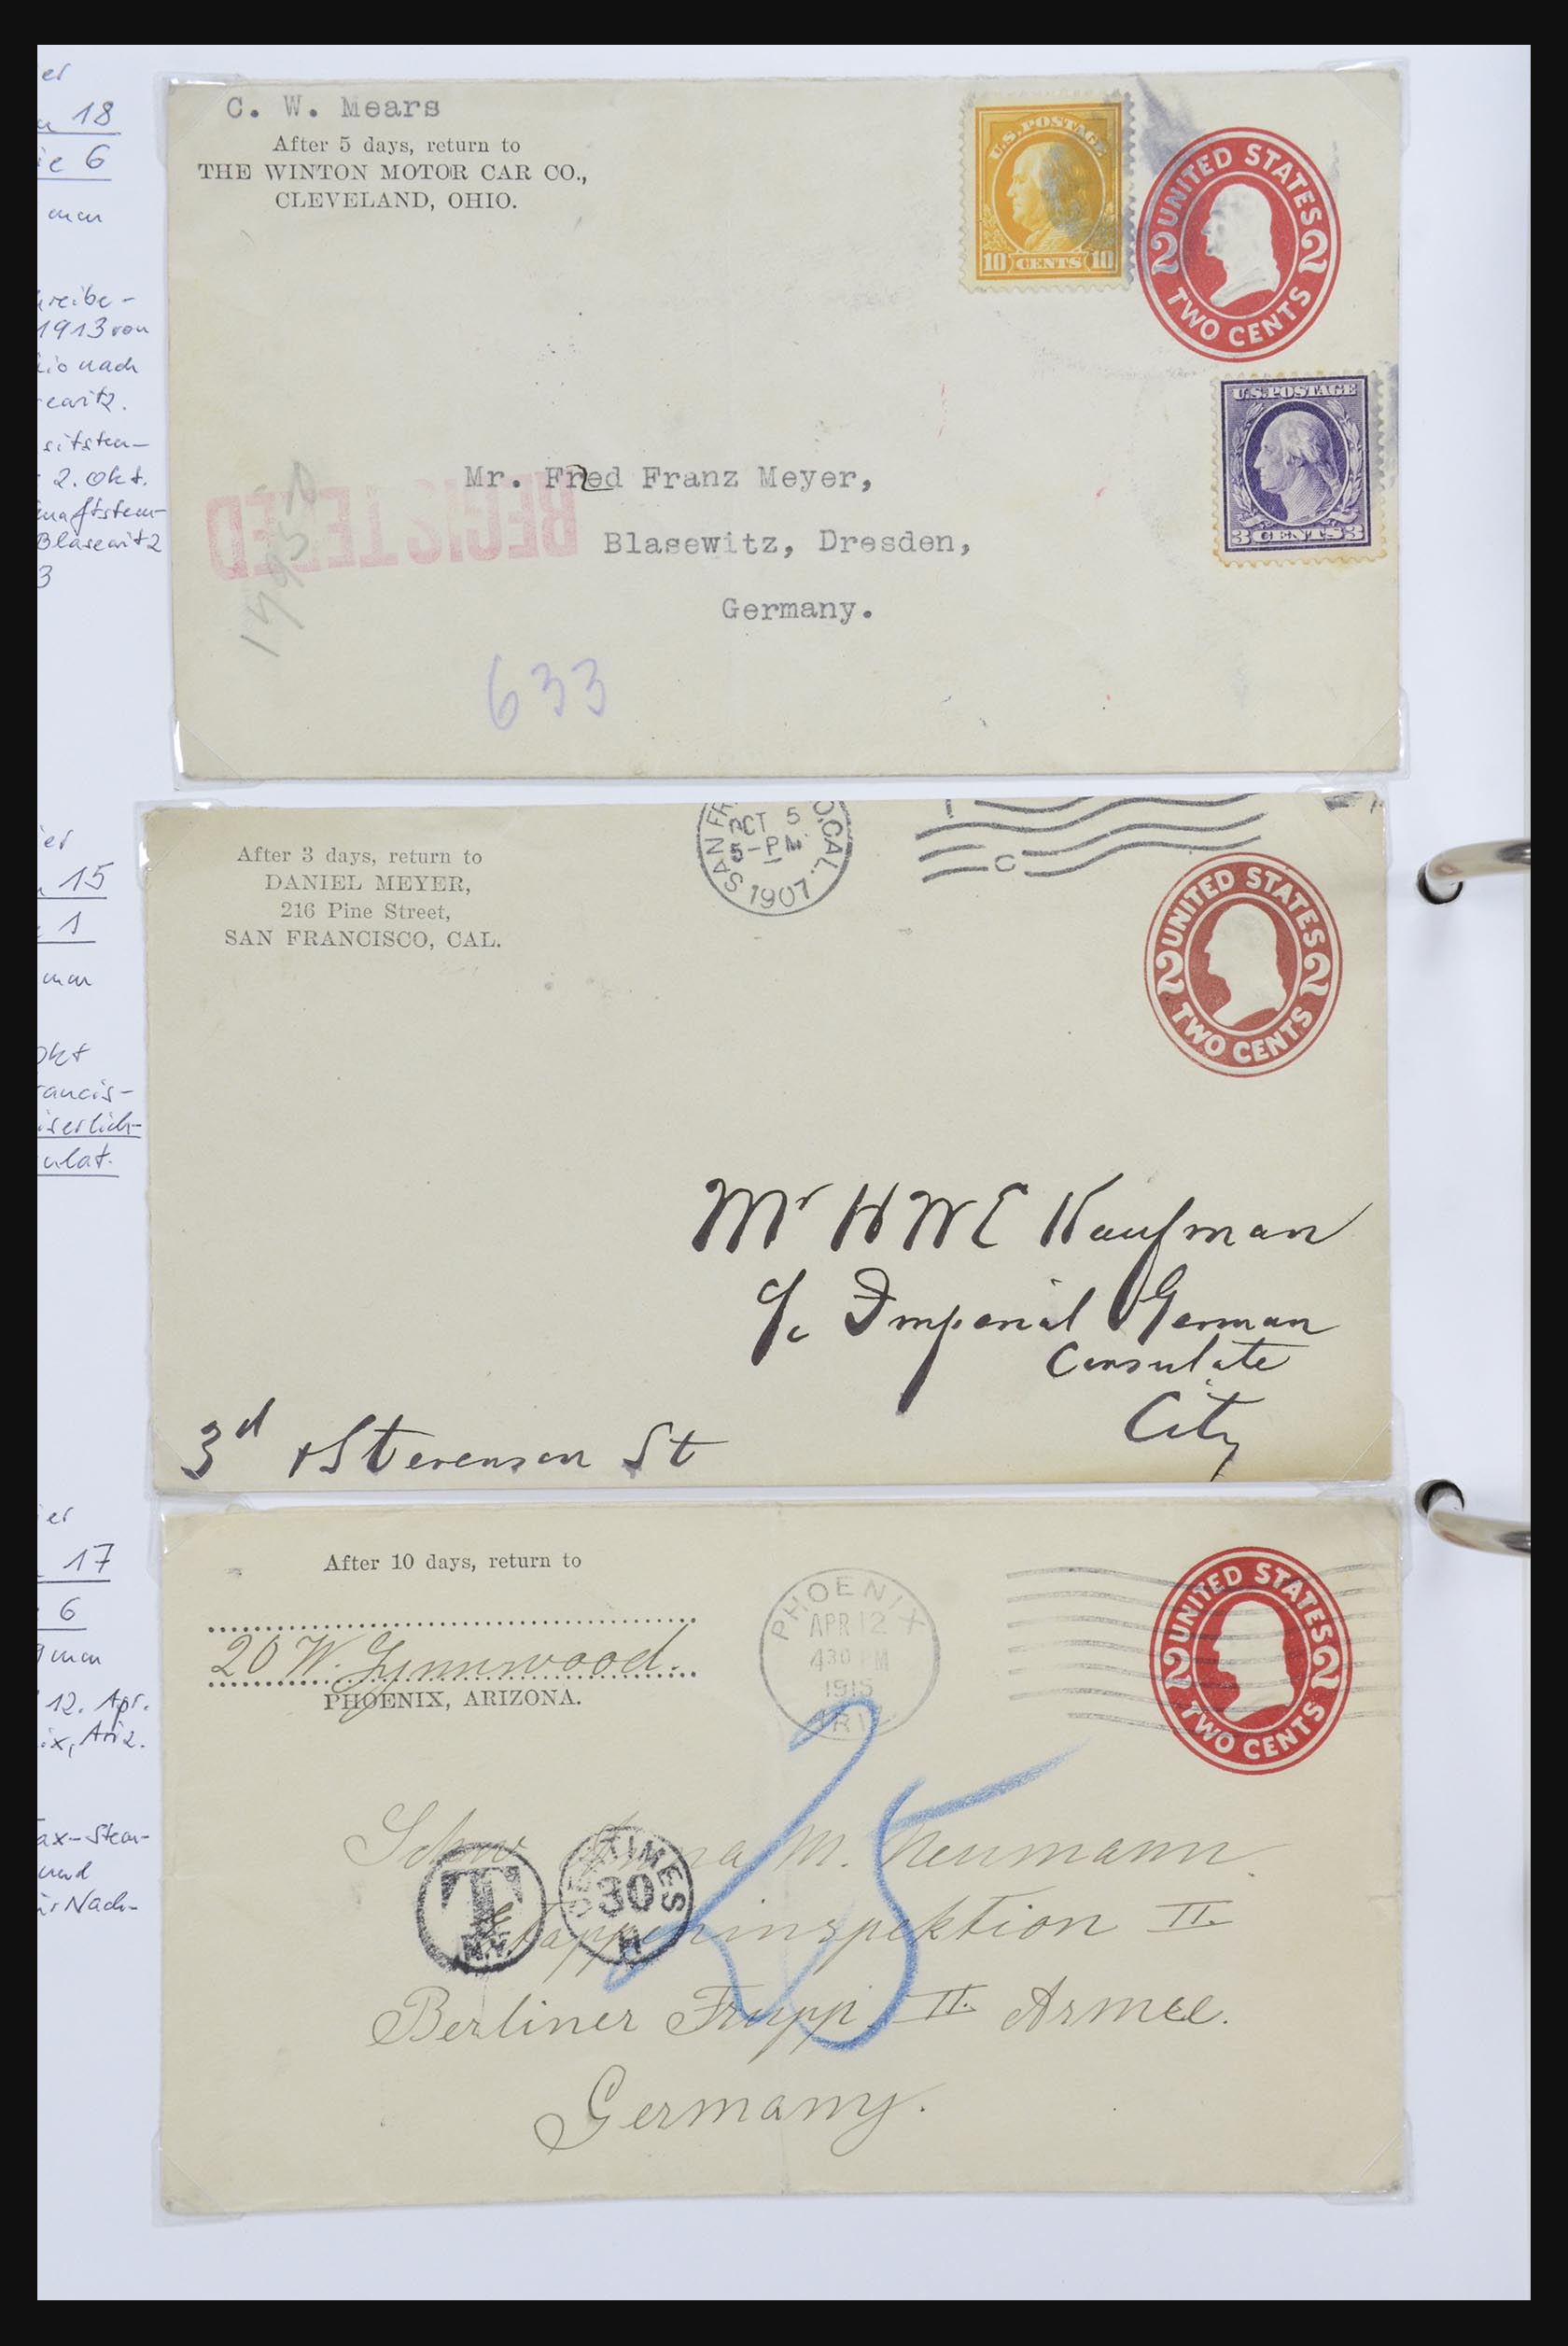 er
18
ie 6
man
hreibe-
1913 von
io nach
ewitz.
sitsten-
2. Okt.
Blasewitz
3
C. W. Mears
After 5 days, return to
THE WINTON MOTOR CAR CO.,
CLEVELAND, OHIO.
U.S. POSTAGE
10 CENTS 10
UNITED STATES
2 2
TWO CENTS
U.S. POSTAGE
3 CENTS 3
Mr. Fred Franz Meyer,
REGISTERED
Blasewitz, Dresden,
Germany.
633
er
15
1
man
Okt
rancis-
iserlich-
ulat.
After 3 days, return to
DANIEL MEYER,
216 Pine Street,
SAN FRANCISCO, CAL.
SAN FR O, CAL.
OCT 5
5-PM
1907
C
UNITED STATES
2 2
TWO CENTS
Mr H W E Kaufman
c/o Imperial German
Consulate
City
3d & Stevenson St
er
17
6
man
12. Apr.
ix, Ariz.
ax-Stem-
und
ür Nach-
After 10 days, return to
20 W. Lynnwood.
PHOENIX, ARIZONA.
PHOENIX
APR 12
430 PM
1915
ARIZ
UNITED STATES
2 2
TWO CENTS
25
Schw. Anna M. Neumann.
T
N.Y.
CENTIMES
30
H
Etappeninspektion II.
Berliner Trupp. II. Armee.
Germany.